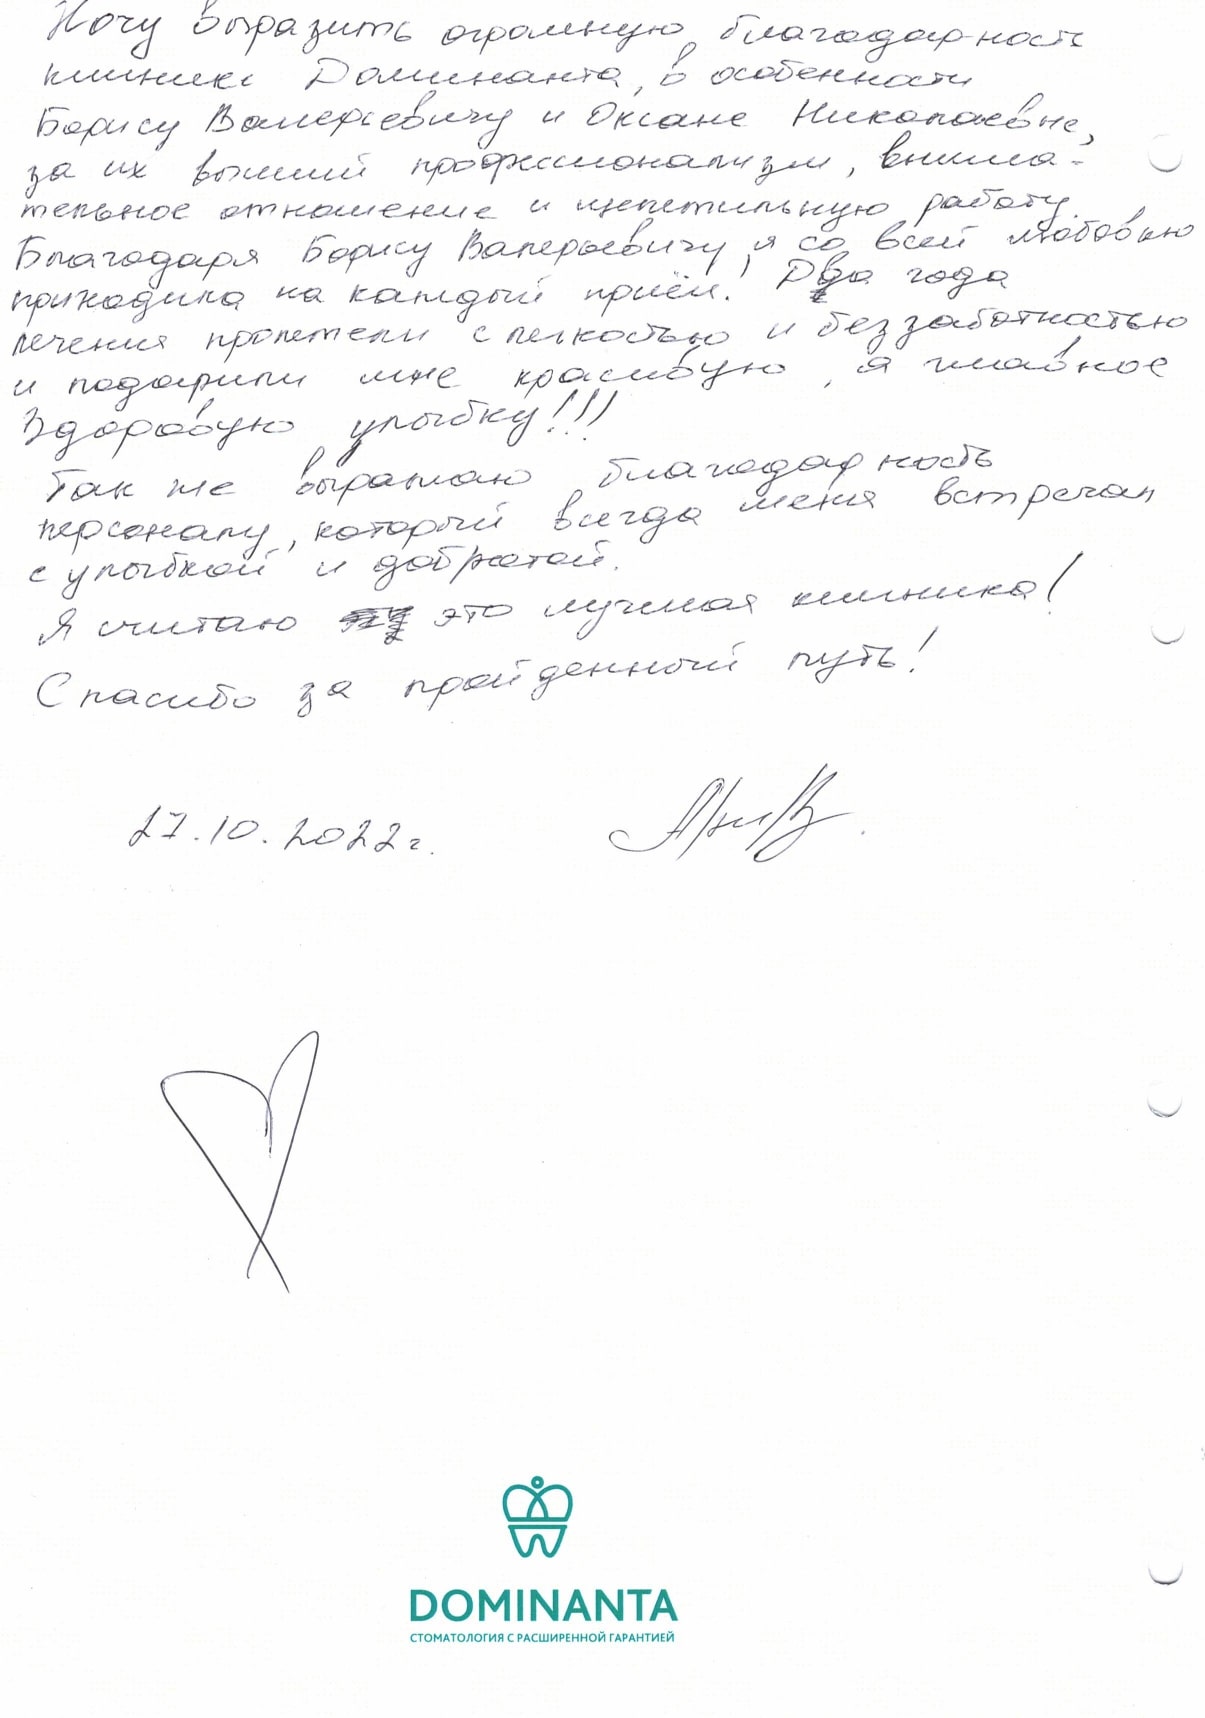 Хочу выразить огромную благодарность
клинике Доминанта, в особенности
Борису Валерьевичу и Оксане Николаевне,
за их высший профессионализм, внима-
тельное отношение и щепетильную работу.
Благодаря Борису Валерьевичу, я со всей любовью
приходила на каждый приём! Два года
лечения пролетели с легкостью и беззаботностью
и подарили мне красивую, а главное
здоровую улыбку!!!
Так же выражаю благодарность
персоналу, который всегда меня встречал
с улыбкой и добротой.
Я считаю это лучшая клиника!
Спасибо за пройденный путь!
27.10.2022г.
DOMINANTA
СТОМАТОЛОГИЯ С РАСШИРЕННОЙ ГАРАНТИЕЙ